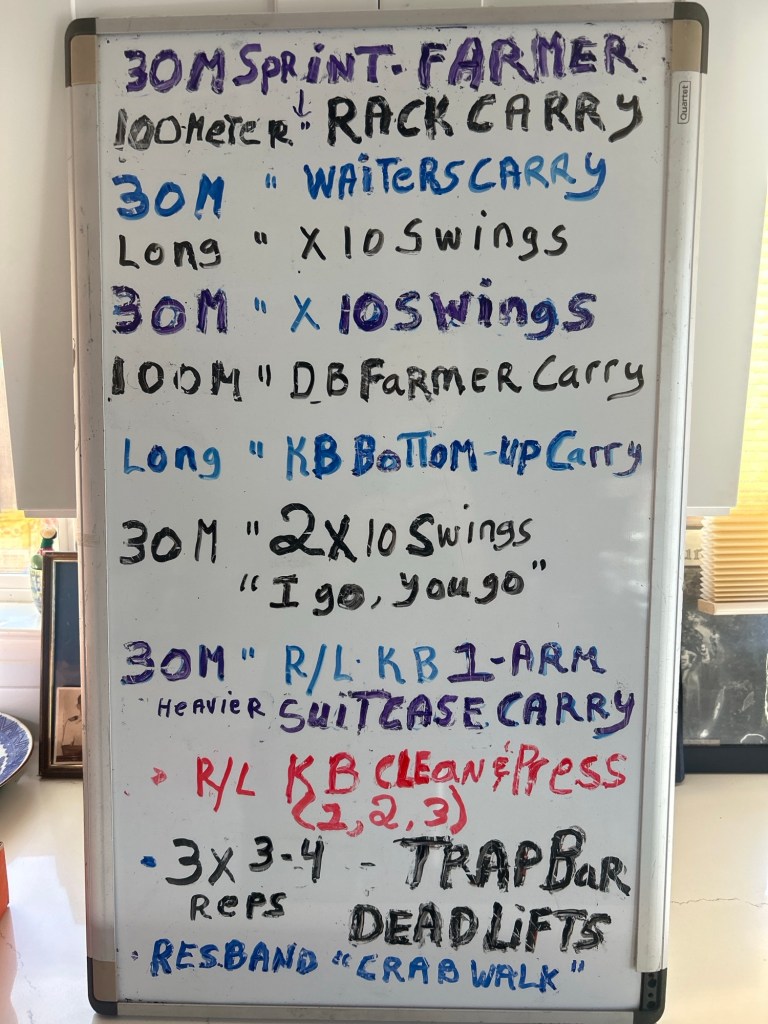 30M SPRINT - FARMER
100 METER " RACK CARRY
30M " WAITERS CARRY
Long " X 10 Swings
30M " X 10 Swings
100M " DB FARMER Carry
Long " KB BOTTOM-UP Carry
30M " 2X10 Swings
"I go, you go"
30M " R/L KB 1-ARM
HEAVIER SUITCASE CARRY
R/L KB CLEAN & PRESS
(1, 2, 3)
• 3X 3-4 - TRAP BAR
REPS DEADLIFTS
• RES. BAND "CRAB WALK"
Quartet